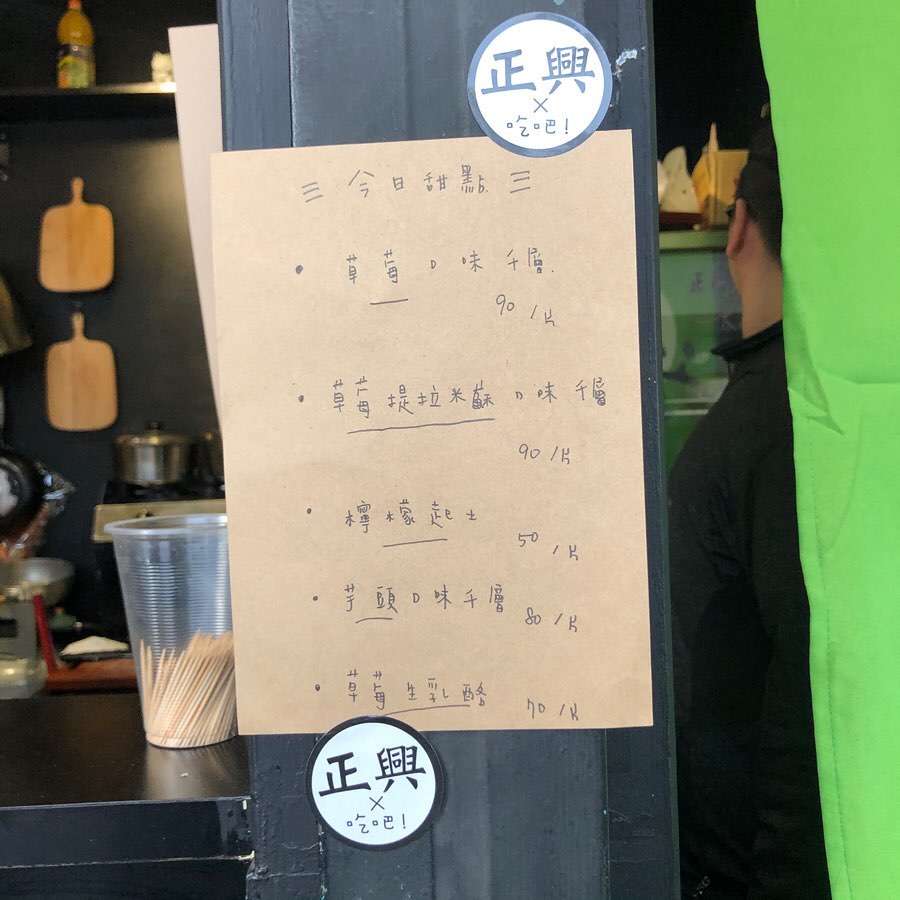 正興
×
吃吧!
三 今日甜點 三
• 草莓口味千層
90/片
• 草莓提拉米酥口味千層
90/片
• 檸檬起士
50/片
• 芋頭口味千層
80/片
• 草莓生乳酪
70/片
正興
×
吃吧!